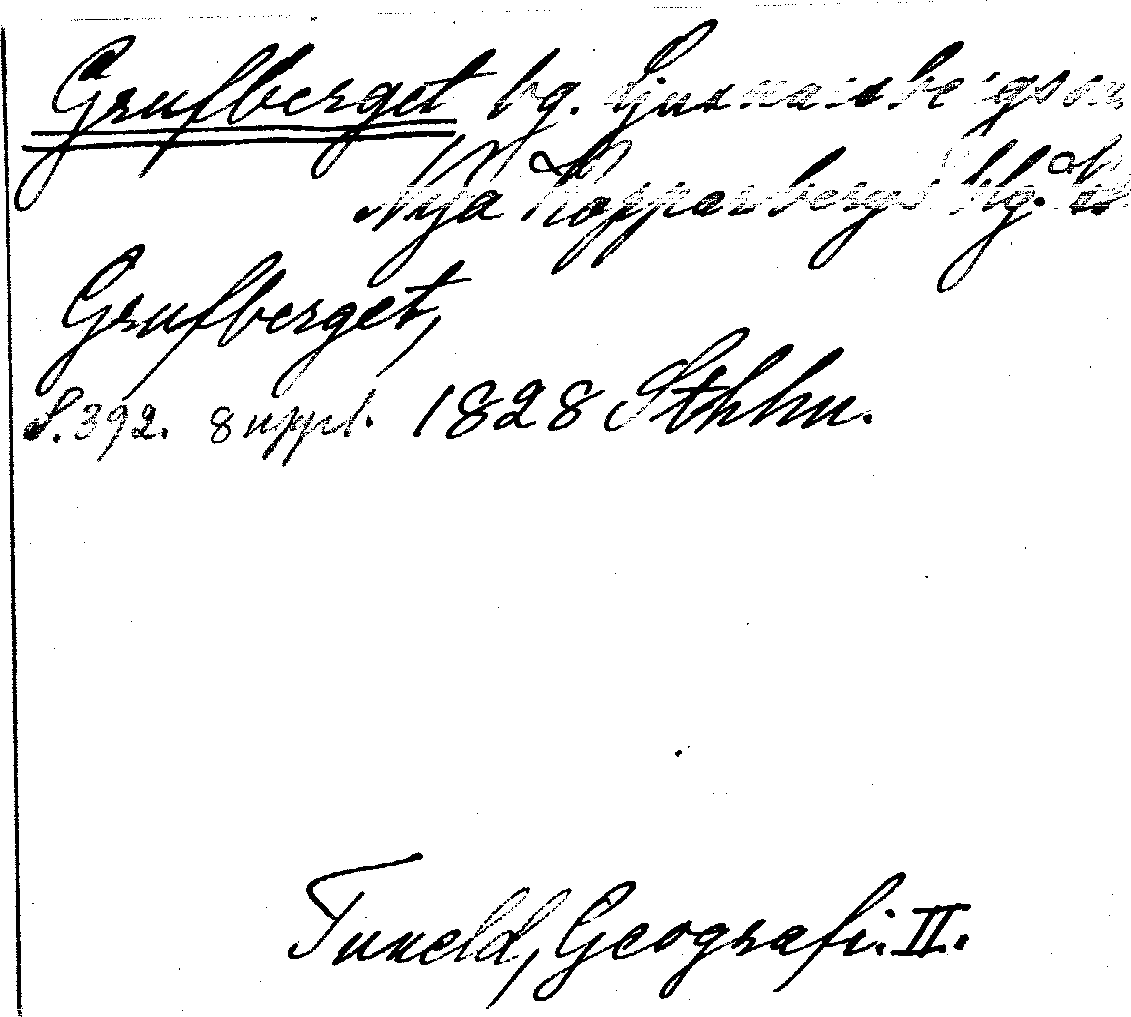 Grufberget bg. Ljusnarsbergs
Nya Kopparbergs bg.
Grufberget,
S. 392. 8 uppl. 1828 Sthlm.
Tuneld, Geografi. II.